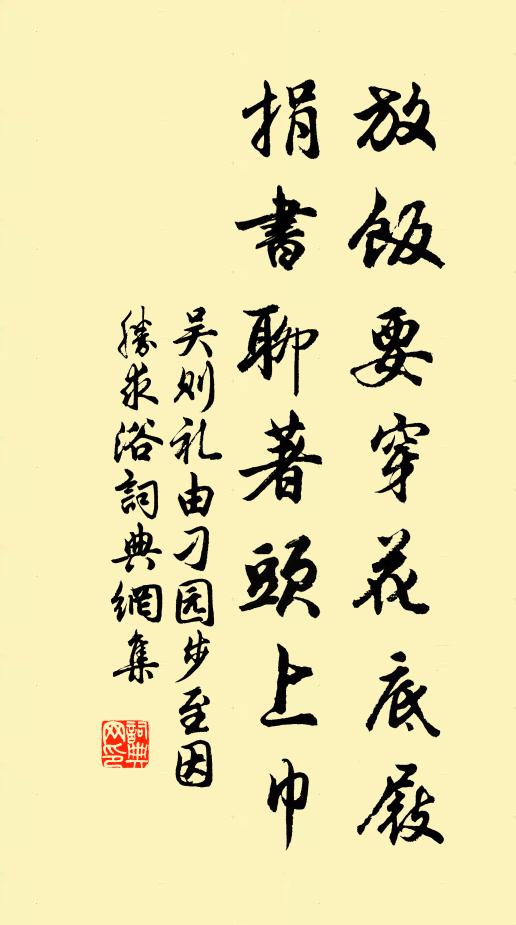 放飯要穿花底屐
捐書聊著頭上巾
吴则礼由刁园步至因
勝求浴詞典網集
詞典
网印